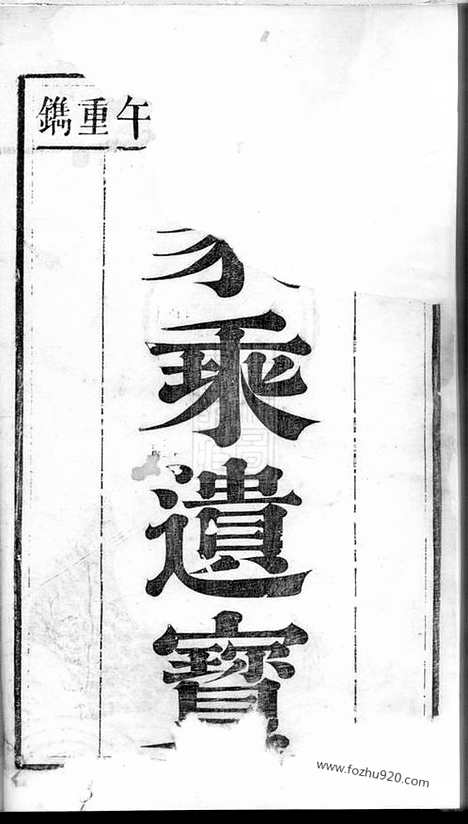 午重鐫
乘遺寶
www.fozhu920.com